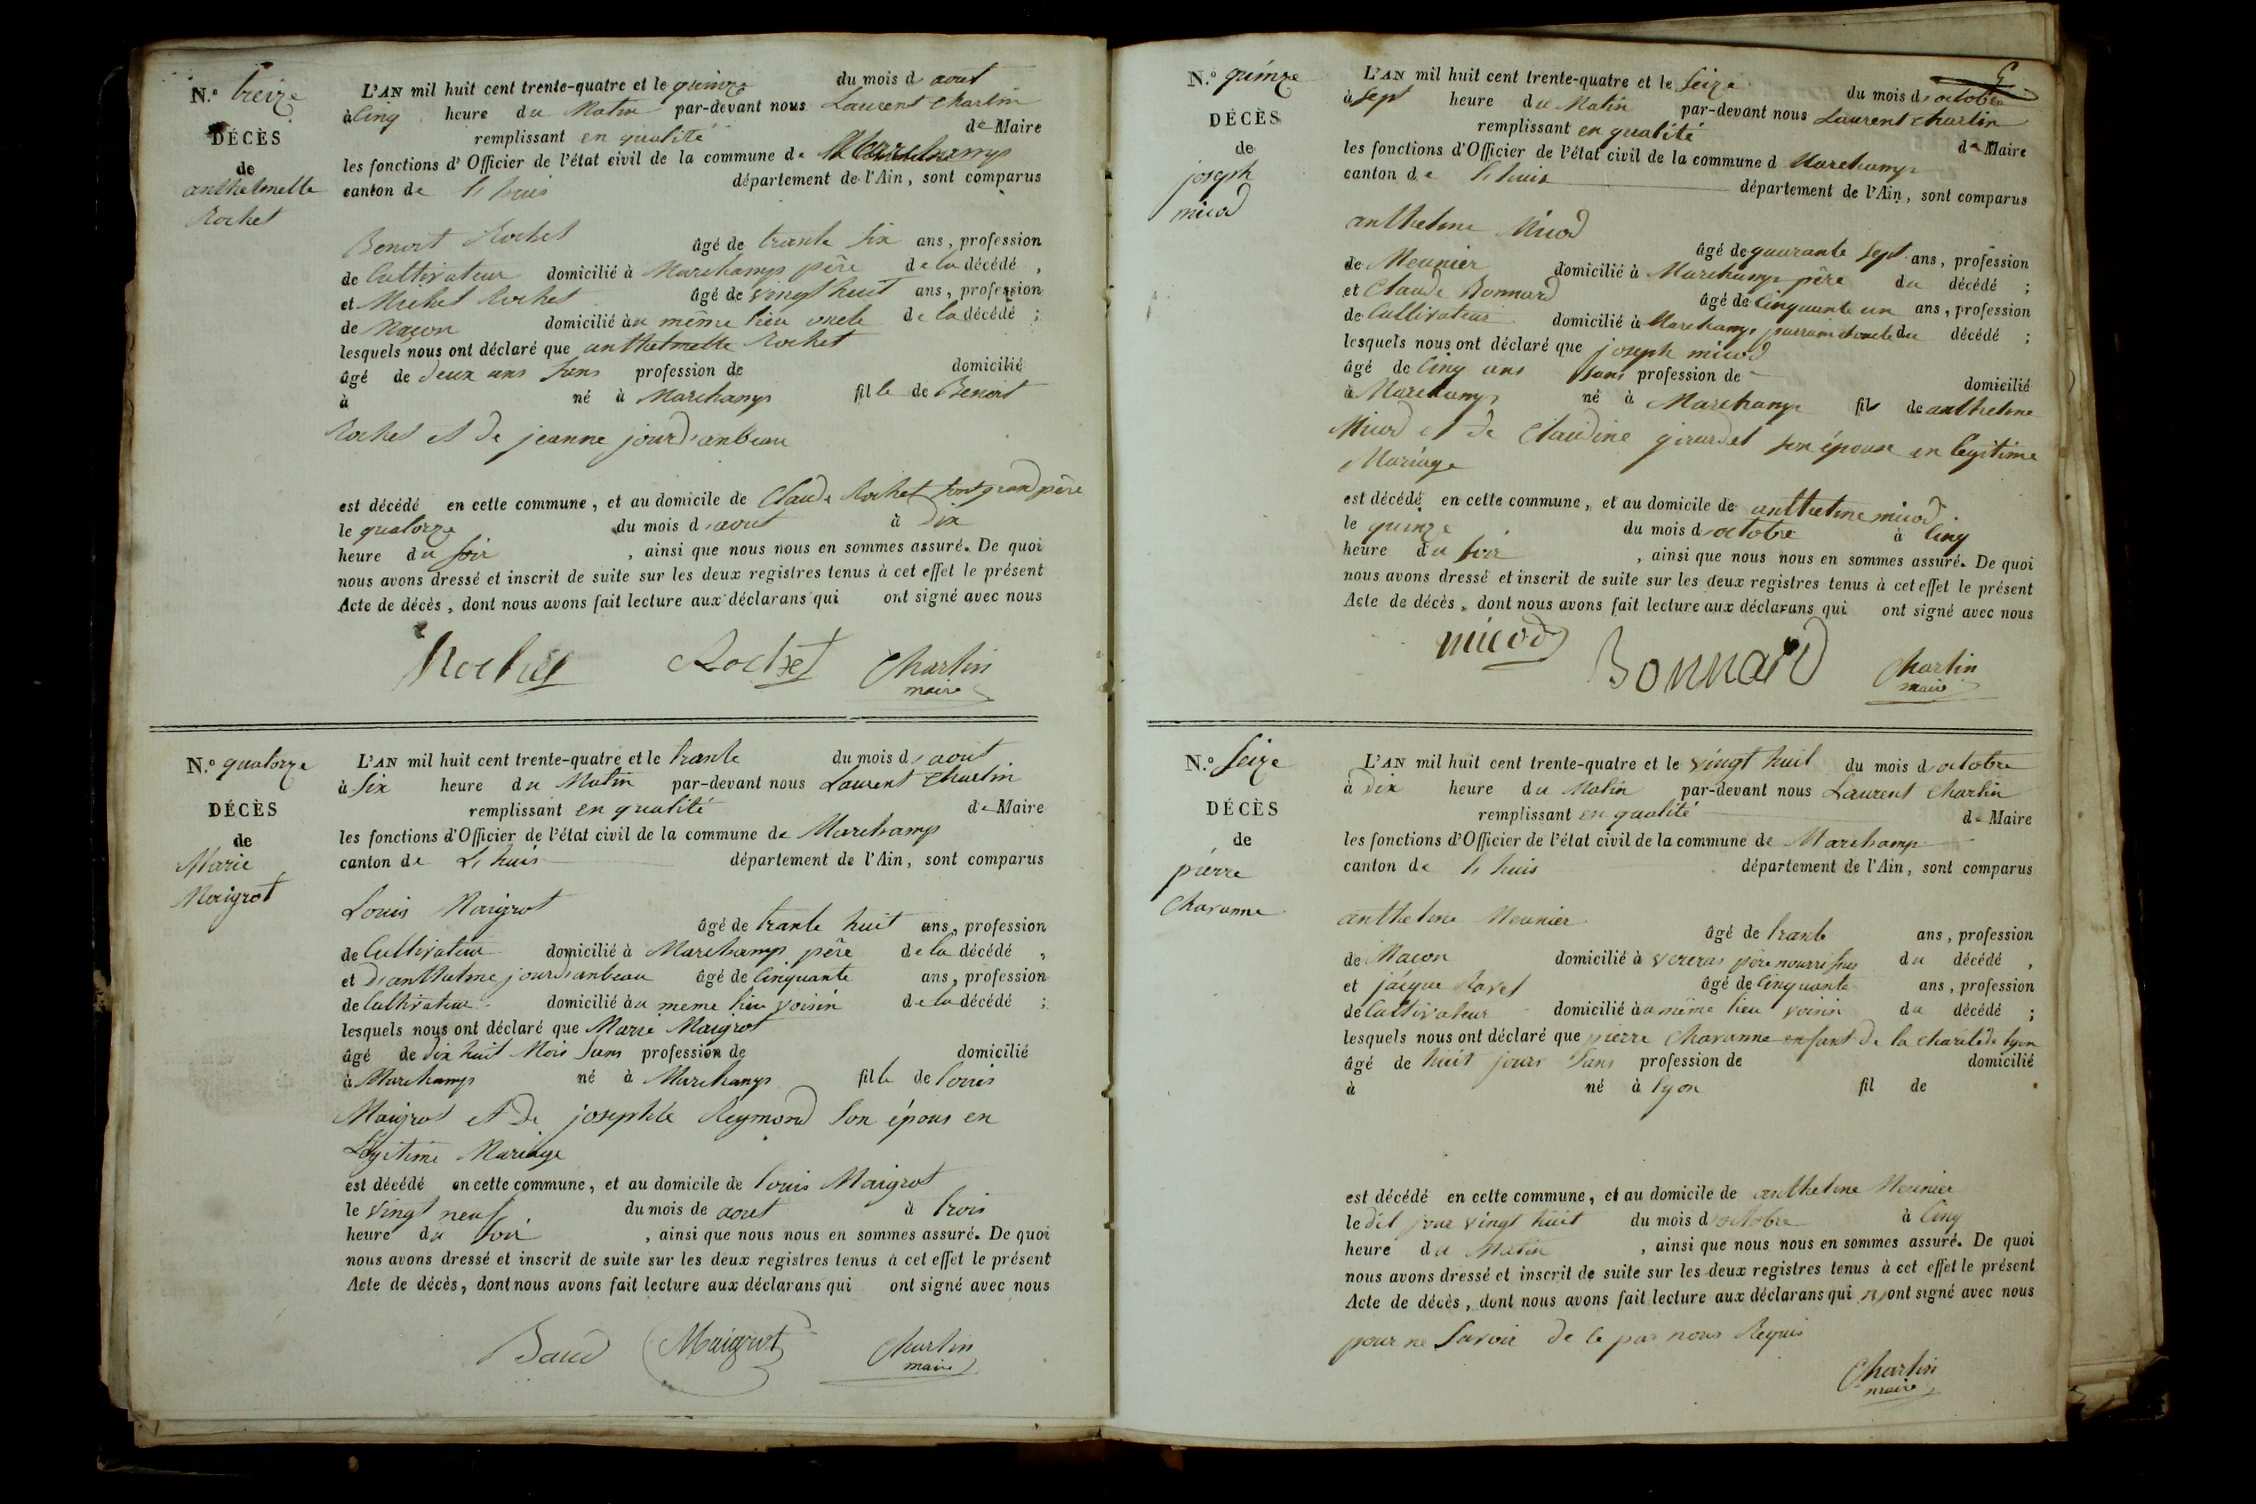 N.º treize
DÉCÈS
de
anthelmette
Rochet
L'AN mil huit cent trente-quatre et le quinze du mois d'aout
à Cinq heure du Matin par-devant nous Laurent Charlin
remplissant en qualité de Maire
les fonctions d'Officier de l'état civil de la commune de Marchamp
canton de Lhuis département de l'Ain, sont comparus
Benoit Rochet âgé de trante six ans, profession
de Cultivateur domicilié à Marchamp père de la décédé,
et Michel Rochet âgé de vingt huit ans, profession
de Maçon domicilié au même lieu oncle de la décédé;
lesquels nous ont déclaré que anthelmette Rochet
âgé de deux ans Sans profession de domicilié
à né à Marchamp fille de Benoit
Rochet et de jeanne jourd'anbeau
est décédé en cette commune, et au domicile de Claude Rochet Sont grand père
le quatorze du mois d'aout à dix
heure du Soir, ainsi que nous nous en sommes assuré. De quoi
nous avons dressé et inscrit de suite sur les deux registres tenus à cet effet le présent
Acte de décès, dont nous avons fait lecture aux déclarans qui ont signé avec nous
Rochet Rochet Charlin
maire
N.º quatorze
DÉCÈS
de
Marie
Maigrot
L'AN mil huit cent trente-quatre et le trante du mois d'aout
à Six heure du Matin par-devant nous Laurent Charlin
remplissant en qualité de Maire
les fonctions d'Officier de l'état civil de la commune de Marchamp
canton de Lhuis département de l'Ain, sont comparus
Louis Maigrot âgé de trante huit ans, profession
de Cultivateur domicilié à Marchamp père de la décédé,
et d'anthelme jourd'anbeau âgé de Cinquante ans, profession
de Cultivateur domicilié au meme lieu voisin de la décédé;
lesquels nous ont déclaré que Marie Maigrot
âgé de dix huit Mois Sans profession de domicilié
à Marchamp né à Marchamp fille de louis
Maigrot et de josephte Reymond Son épous en
Légitime Mariage
est décédé en cette commune, et au domicile de louis Maigrot
le vingt neuf du mois de aout à trois
heure du Soir, ainsi que nous nous en sommes assuré. De quoi
nous avons dressé et inscrit de suite sur les deux registres tenus à cet effet le présent
Acte de décès, dont nous avons fait lecture aux déclarans qui ont signé avec nous
Baud Maigrot Charlin
maire
N.º quinze
DÉCÈS
de
joseph
micod
L'AN mil huit cent trente-quatre et le Seize du mois d'octobre
à Sept heure du Matin par-devant nous Laurent Charlin
remplissant en qualité de Maire
les fonctions d'Officier de l'état civil de la commune d Marchamp
canton de Lhuis département de l'Ain, sont comparus
anthelme Micod âgé de quarante Sept ans, profession
de Meunier domicilié à Marchamp père du décédé;
et Claude Bonnard âgé de Cinquante un ans, profession
de Cultivateur domicilié à Marchamp du décédé;
lesquels nous ont déclaré que joseph micod
âgé de Cinq ans Sans profession de domicilié
à Marchamp né à Marchamp fils de anthelme
Micod et de Claudine girardet son épouse en legitime
Mariage
est décédé en cette commune, et au domicile de anthelme micod
le quinze du mois d'octobre à Cinq
heure du Soir, ainsi que nous nous en sommes assuré. De quoi
nous avons dressé et inscrit de suite sur les deux registres tenus à cet effet le présent
Acte de décès, dont nous avons fait lecture aux déclarans qui ont signé avec nous
micod Bonnard Charlin
maire
N.º Seize
DÉCÈS
de
pierre
Chavanne
L'AN mil huit cent trente-quatre et le vingt huit du mois d'octobre
à dix heure du Matin par-devant nous Laurent Charlin
remplissant en qualité de Maire
les fonctions d'Officier de l'état civil de la commune de Marchamp
canton de Lhuis département de l'Ain, sont comparus
anthelme Meunier âgé de trante ans, profession
de Maçon domicilié à père du décédé,
et jacque âgé de Cinquante ans, profession
de Cultivateur domicilié au même lieu voisin du décédé;
lesquels nous ont déclaré que pierre Chavanne enfant de la charité de lyon
âgé de huit jours Sans profession de domicilié
à né à lyon fil de
est décédé en cette commune, et au domicile de anthelme Meunier
le dit jour vingt huit du mois d'octobre à Cinq
heure du Matin, ainsi que nous nous en sommes assuré. De quoi
nous avons dressé et inscrit de suite sur les deux registres tenus à cet effet le présent
Acte de décès, dont nous avons fait lecture aux déclarans qui n'ont signé avec nous
pour ne Savoir de ce par nous Requis
Charlin
maire